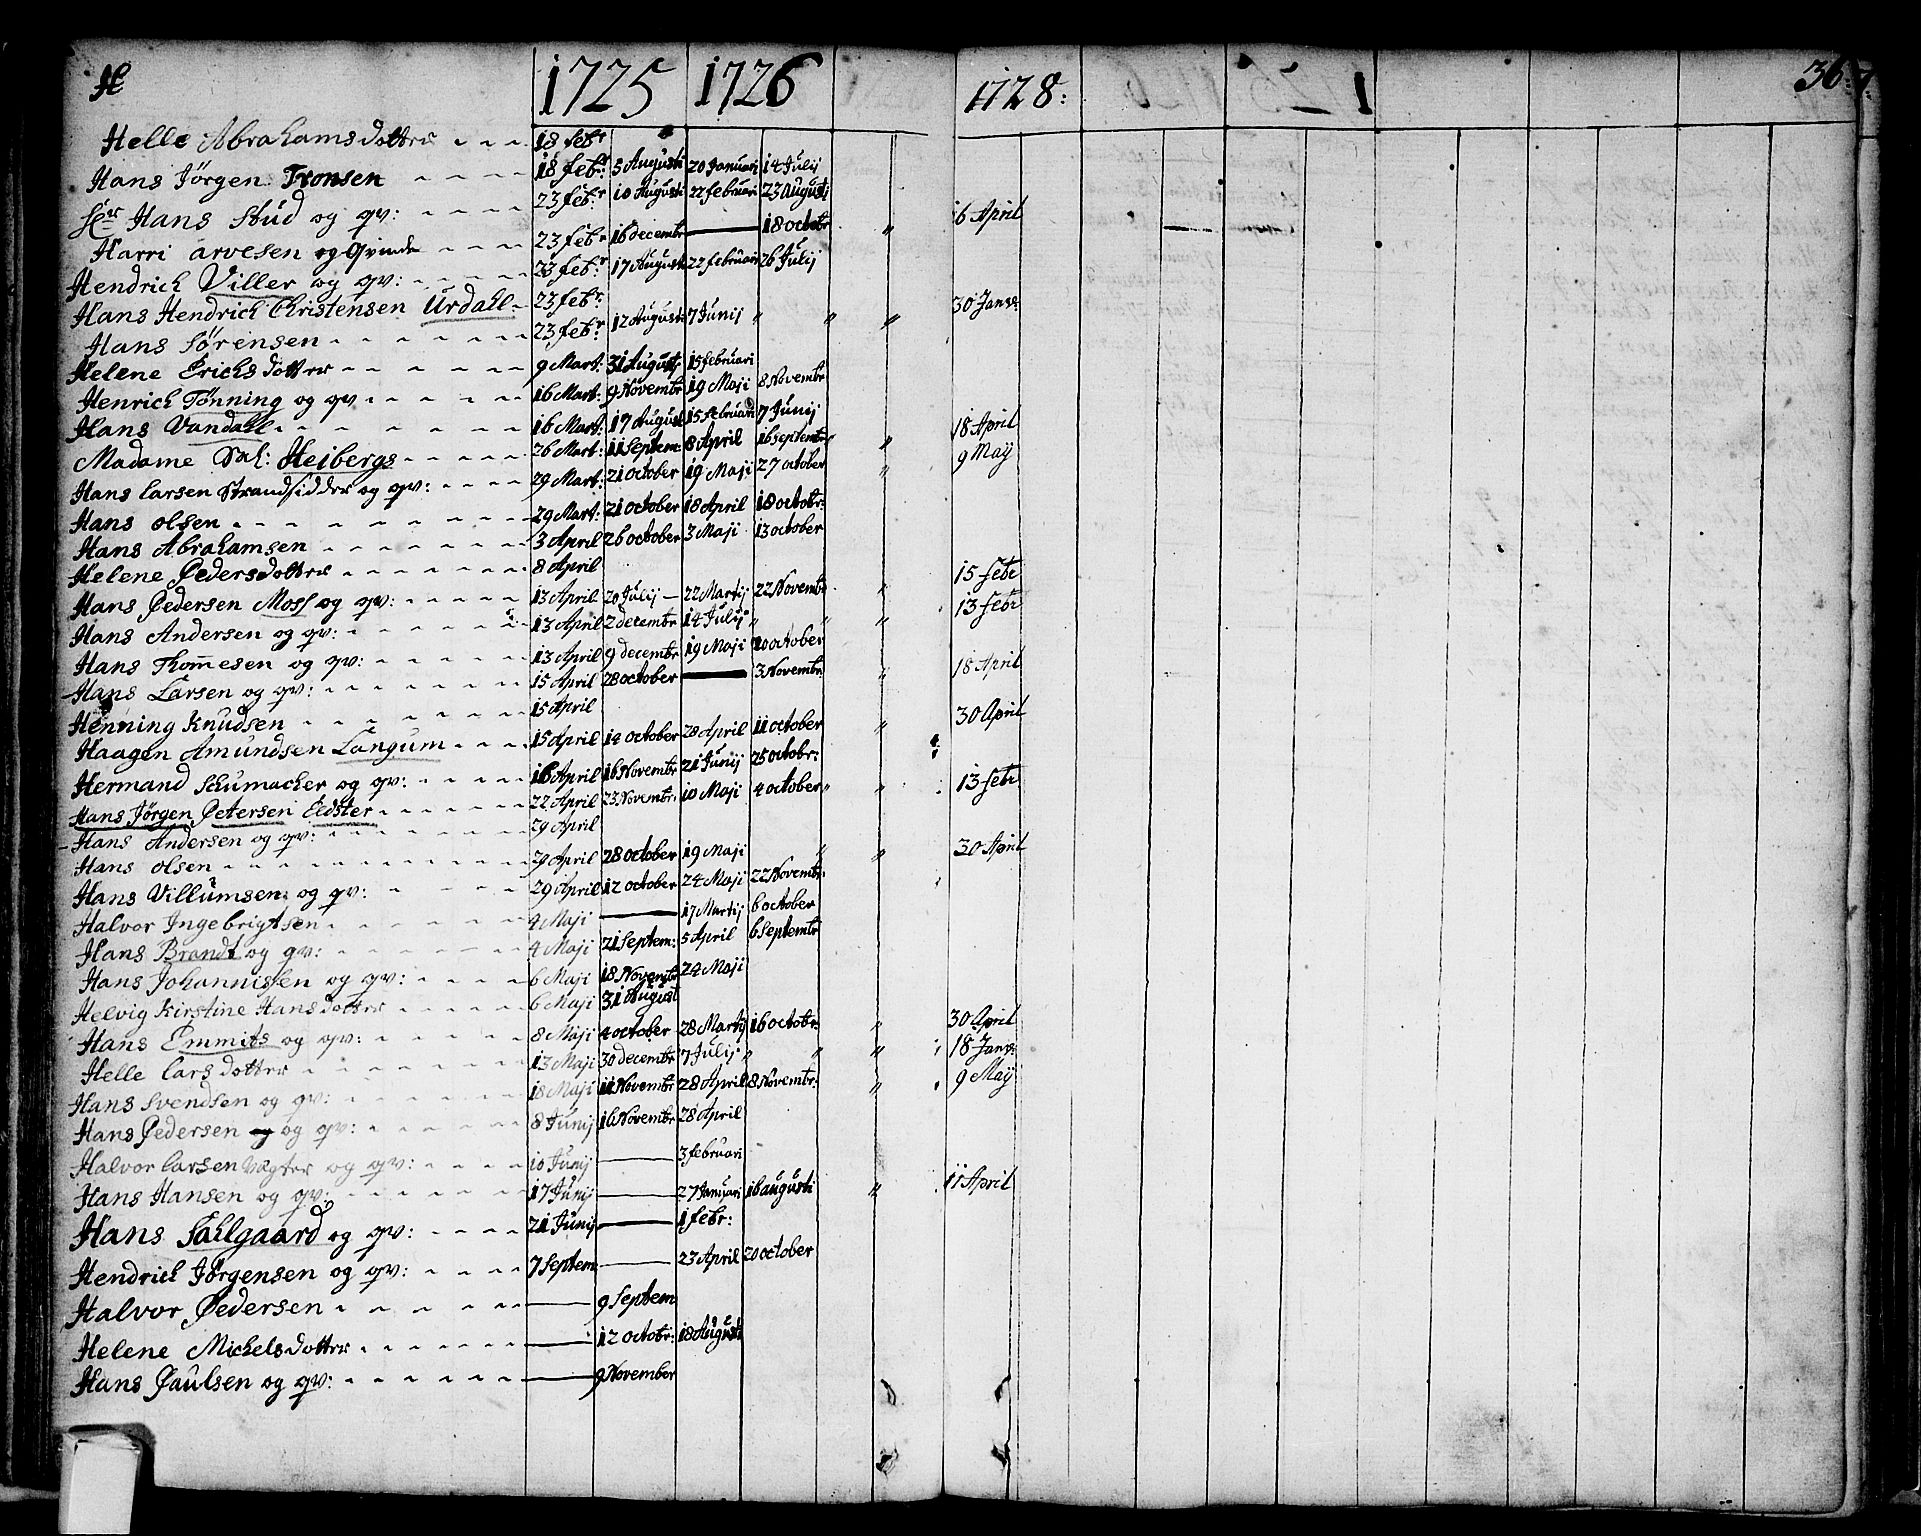 H 1725 1726 1728: 36: 7:
Helle Abrahamsdotter 18 febr
Hans Jörgen Tronsen 18 febr: 5 Augusti 20 Januari 14 Julij
Sr Hans Stud og qv: 23 febr 10 Augusti 22 februari 23 Augusti 16 April
Harri arvesen og Qvinde 23 febr 16 decembr — 18 octobr „
Hendrich Viller og qv: 23 febr 17 Augusti 22 februari 26 Julij
Hans Hendrich Christensen Urdahl 23 febr. 30 Janv:
Hans Sørensen 23 febr 12 Augusti 7 Junij „ „ „
Helene Erichsdotter 9 Mart: 31 Augusti 15 februari
Henrich Tønning og qv 16 Mart: 9 Novembr 19 Maji 8 Novembr
Hans Vandahl 16 Mart: 17 Augusti 15 februari 7 Junij 18 April
Madame Sal: Heibergs 26 Mart: 11 Septem: 8 April 16 Septembr „ „ 9 Maÿ
Hans Larsen Strandsidder og qv: 29 Mart: 21 october 19 Maji 27 october „
Hans olsen 29 Mart: 21 october 18 April 18 octobr:
Hans Abrahamsen 3 April 26 october 3 Maji 13 october
Helene Pedersdotter 8 April 15 febr
Hans Pedersen Moss og qv: 13 April 20 Julij — 22 Martij 22 Novembr „ 13 febr
Hans Andersen og qv: 13 April 2 decembr 14 Julij „ „ „
Hans Thom̅esen og qv: 13 April 9 decembr 19 Maji 20 october
Hans Larsen og qv: 15 April 28 october — 3 Novembr „ 18 April
Henning Knudsen 15 April 30 April
Haagen Amundsen Langum 15 April 14 october 28 April 11 october „
Hermand Schumacher og qv: 16 April 16 Novembr 21 Junij 25 octobr:
Hans Jörgen Petersen Eedster 22 April 23 Novembr: 10 Maji 4 october „ „ 13 febr
Hans Andersen og qv: 29 April
Hans olsen 29 April 28 october 19 Maji „ „ 30 April
Hans Villumsen og qv: 29 April 12 october 24 Maji 22 Novembr:
Halvor Ingebrigtsen 4 Maji — 17 Martij 6 october
Hans Brandt og qv: 4 Maji 21 Septem: 5 April 6 Septembr
Hans Johannissen og qv: 6 Maji 18 Novembr 24 Maji
Helvig Kirstine Hansdotter 6 Maji 31 August
Hans Emmits og qv: 8 Maji 4 october 28 Martij 16 octobr: „ 30 April
Helle Larsdotter 13 Maji 30 decembr 7 Julij „ „ „ 18 Janv:
Hans Svendsen og qv: 18 Maji 11 Novembr 28 April 8 Novembr: „ 9 Maÿ
Hans Pedersen og og qv: 8 Junij 16 Novembr 28 April
Halvor Larsen Vægter og qv: 10 Junij — 3 februari
Hans Hansen og qv: 17 Junij — 27 Januari 16 augusti „ 11 April
Hans Sahlgaard og qv: 21 Junij — 1 febr:
Hendrich Jörgensen og qv: 7 Septem — 23 April 20 october
Halvor Pedersen — 9 Septem
Helene Michelsdotter — 12 octobr: 18 Augusti
Hans Paulsen og qv: — 9 November